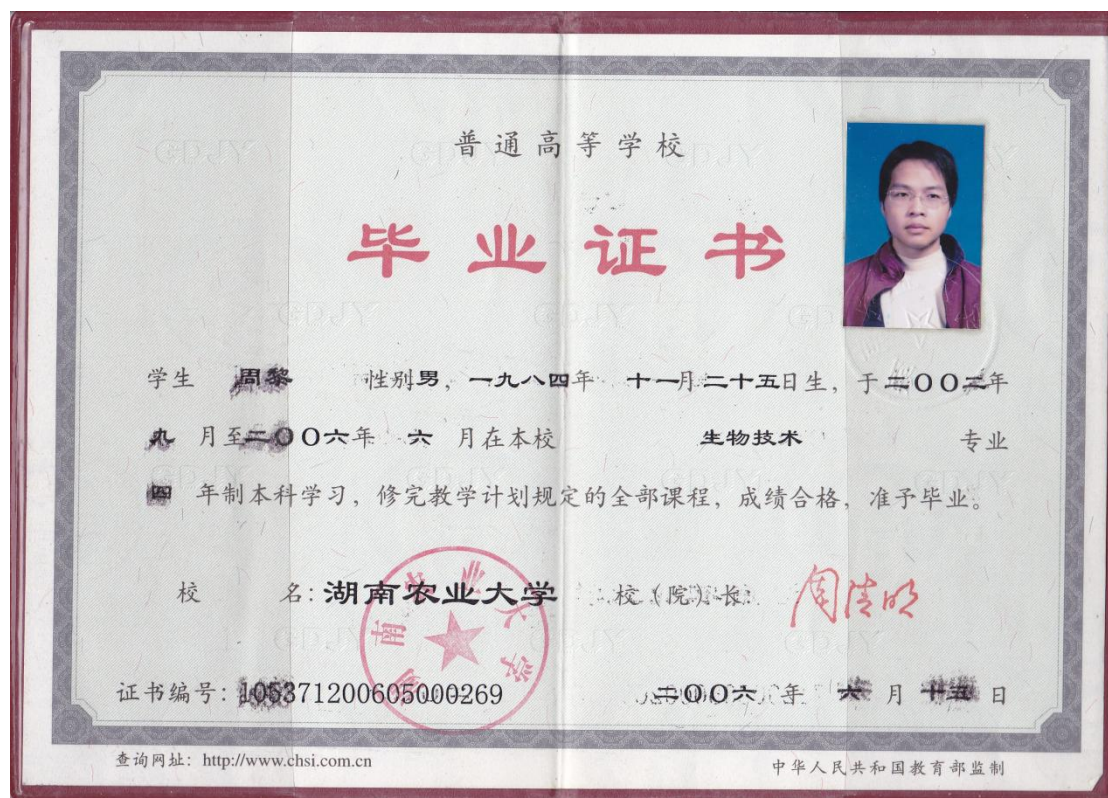 普通高等学校
毕业证书
学生 周黎 性别男，一九八四年 十一月二十五日生，于二〇〇二年
九 月至二〇〇六年 六 月在本校 生物技术 专业
四 年制本科学习，修完教学计划规定的全部课程，成绩合格，准予毕业。
校 名：湖南农业大学 校（院）长： 周清明
湖南农业大学
证书编号：105371200605000269 二〇〇六 年 六 月 十五 日
查询网址：http://www.chsi.com.cn 中华人民共和国教育部监制